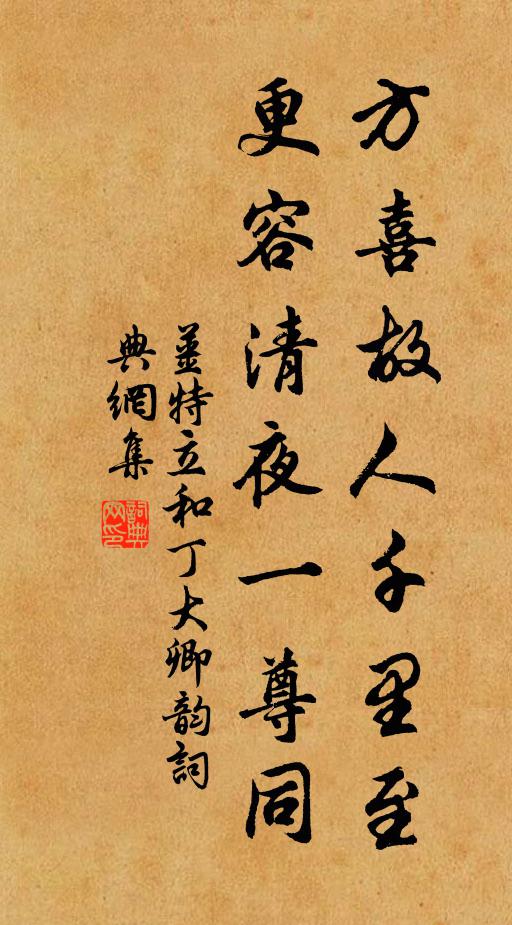 方喜故人千里至
更容清夜一尊同
姜特立和丁大卿韵詞
典網集
詞典网印